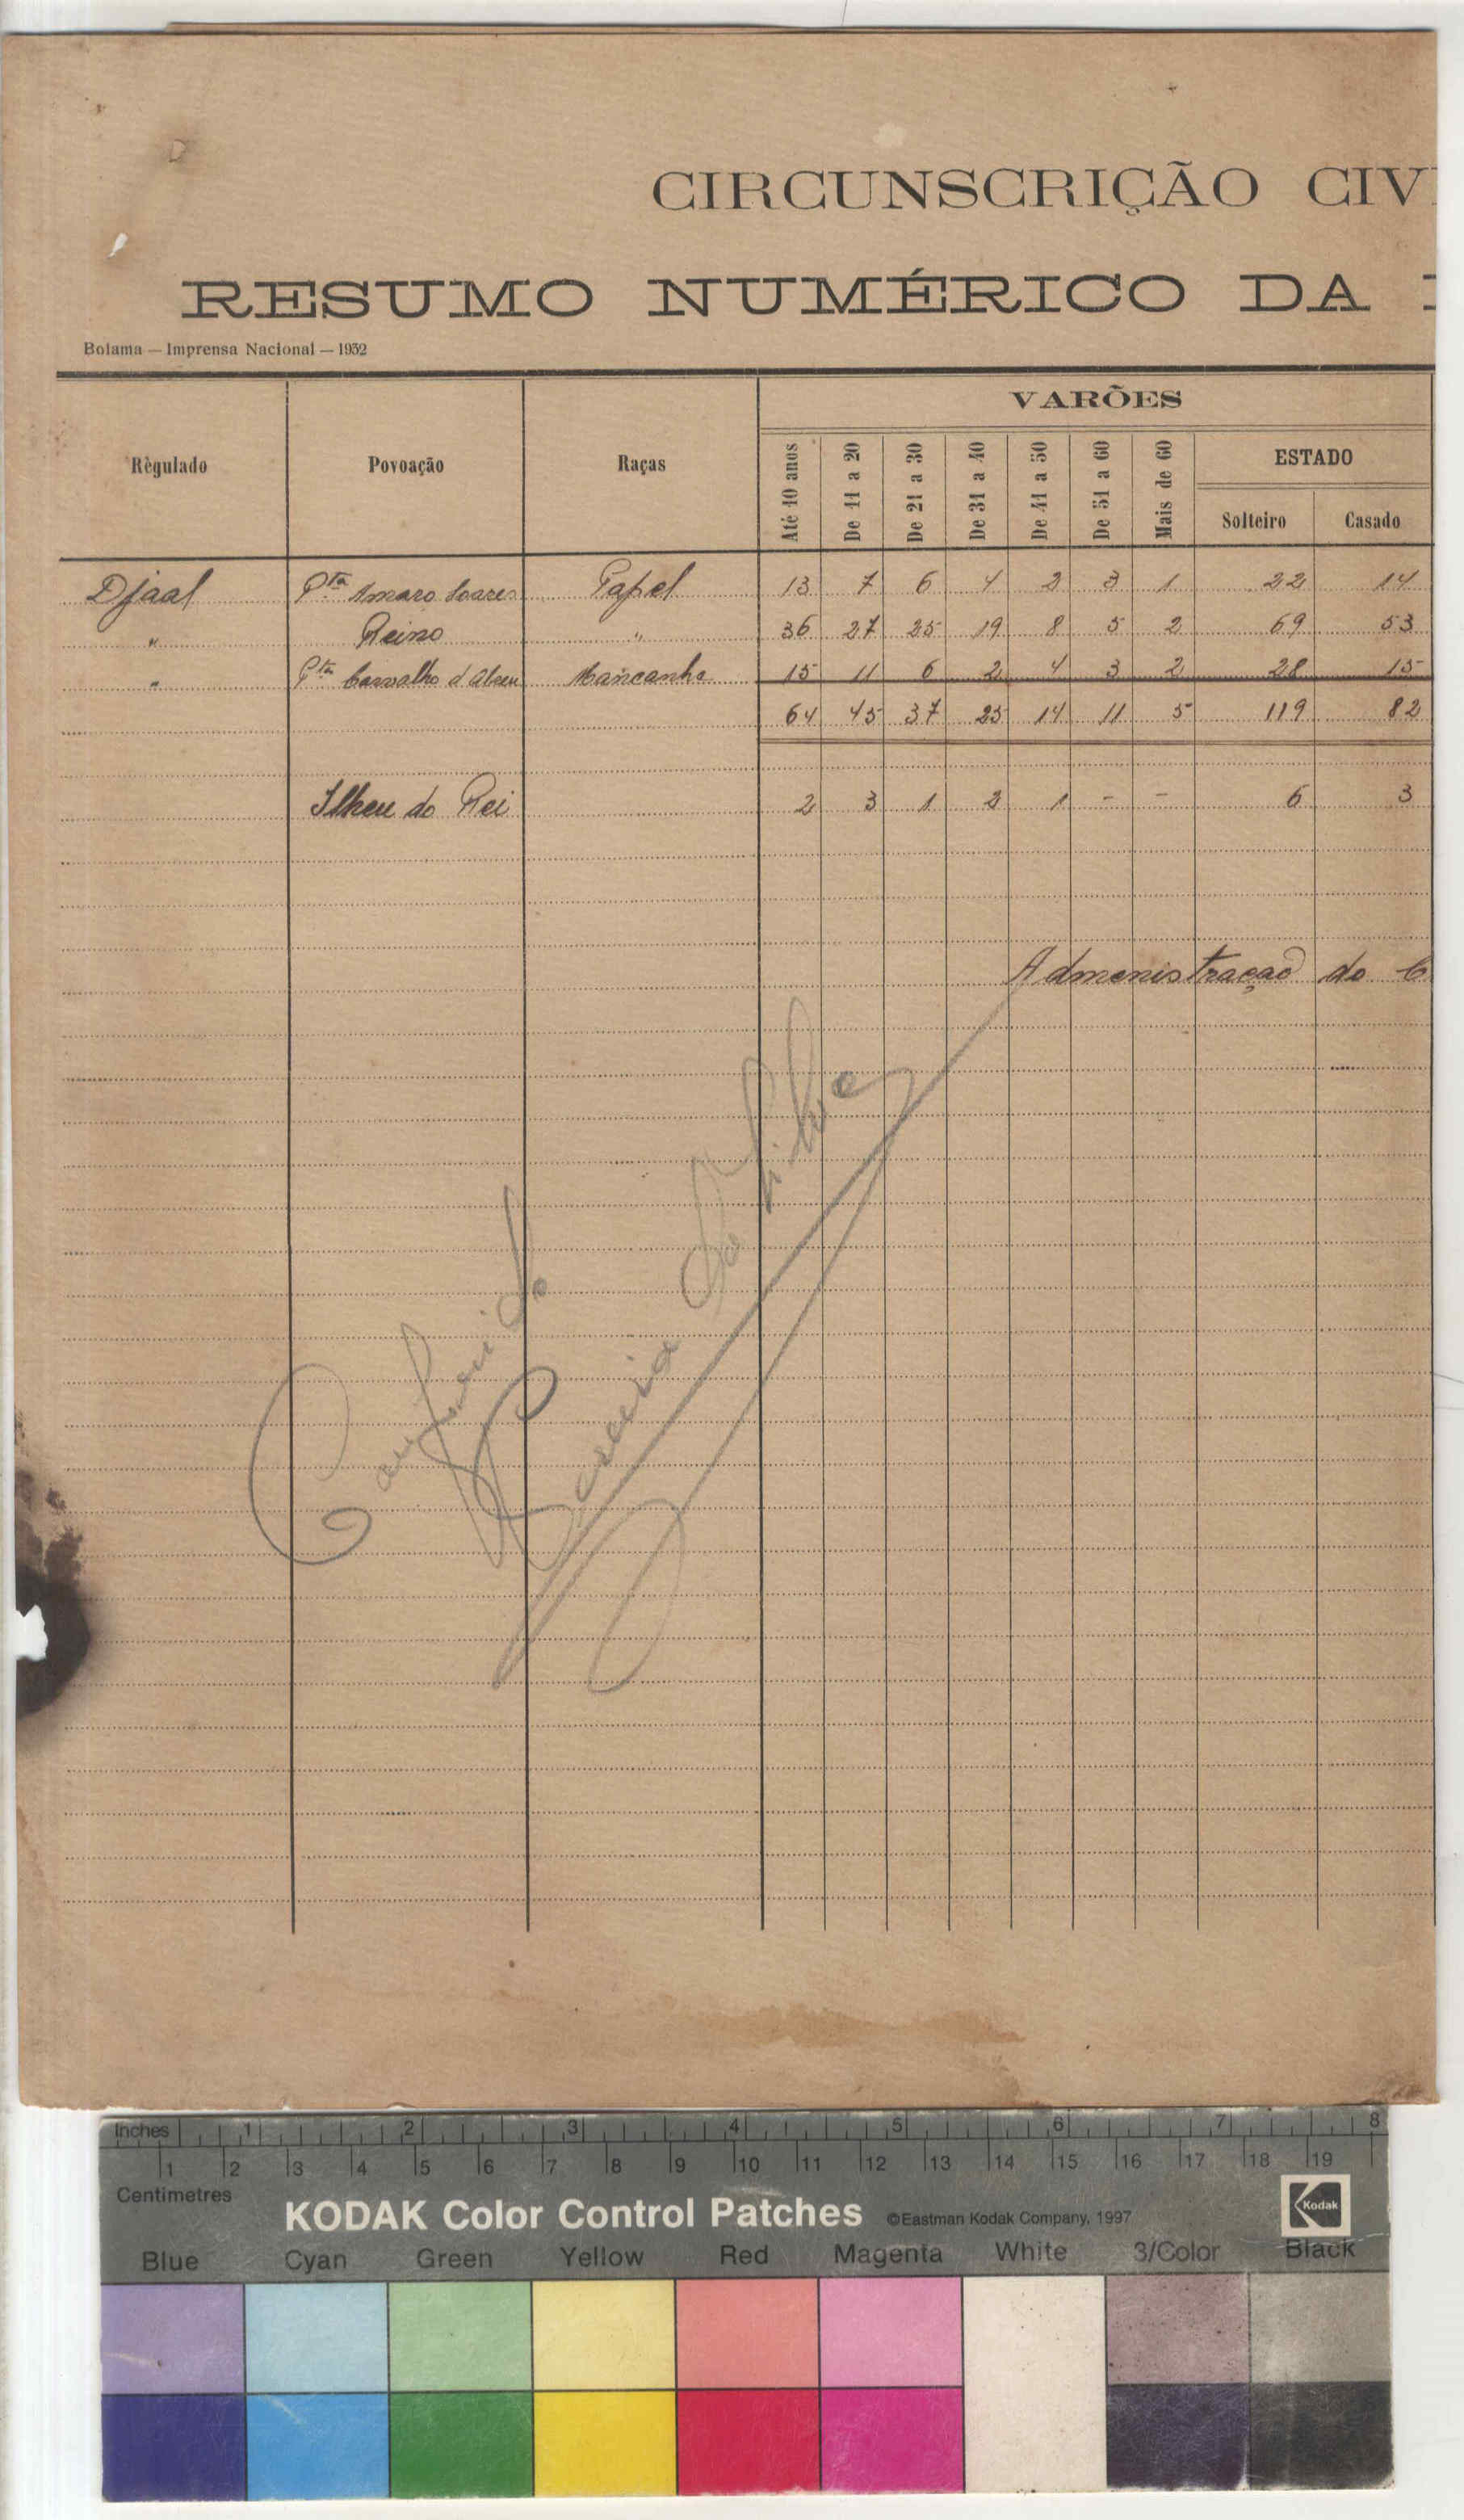 CIRCUNSCRIÇÃO CIV
RESUMO NUMÉRICO DA
Bolama — Imprensa Nacional — 1932
Règulado Povoação Raças VARÕES
Até 10 anos De 11 a 20 De 21 a 30 De 31 a 40 De 41 a 50 De 51 a 60 Mais de 60 ESTADO
Solteiro Casado
Djaal Pta Amaro Soares Papel 13 7 6 4 2 3 1 22 14
" Reino " 36 27 25 19 8 5 2 69 53
" Pta Carvalho d'Abreu Mancanha 15 11 6 2 4 3 2 28 15
64 45 37 25 14 11 5 119 82
Ilheu do Rei 2 3 1 2 1 - - 6 3
Admenistração do C
Conferido
Pereira da Silva
Inches 1 2 3 4 5 6 7 8
1 2 3 4 5 6 7 8 9 10 11 12 13 14 15 16 17 18 19
Centimetres
KODAK Color Control Patches ©Eastman Kodak Company, 1997 Kodak
Blue Cyan Green Yellow Red Magenta White 3/Color Black